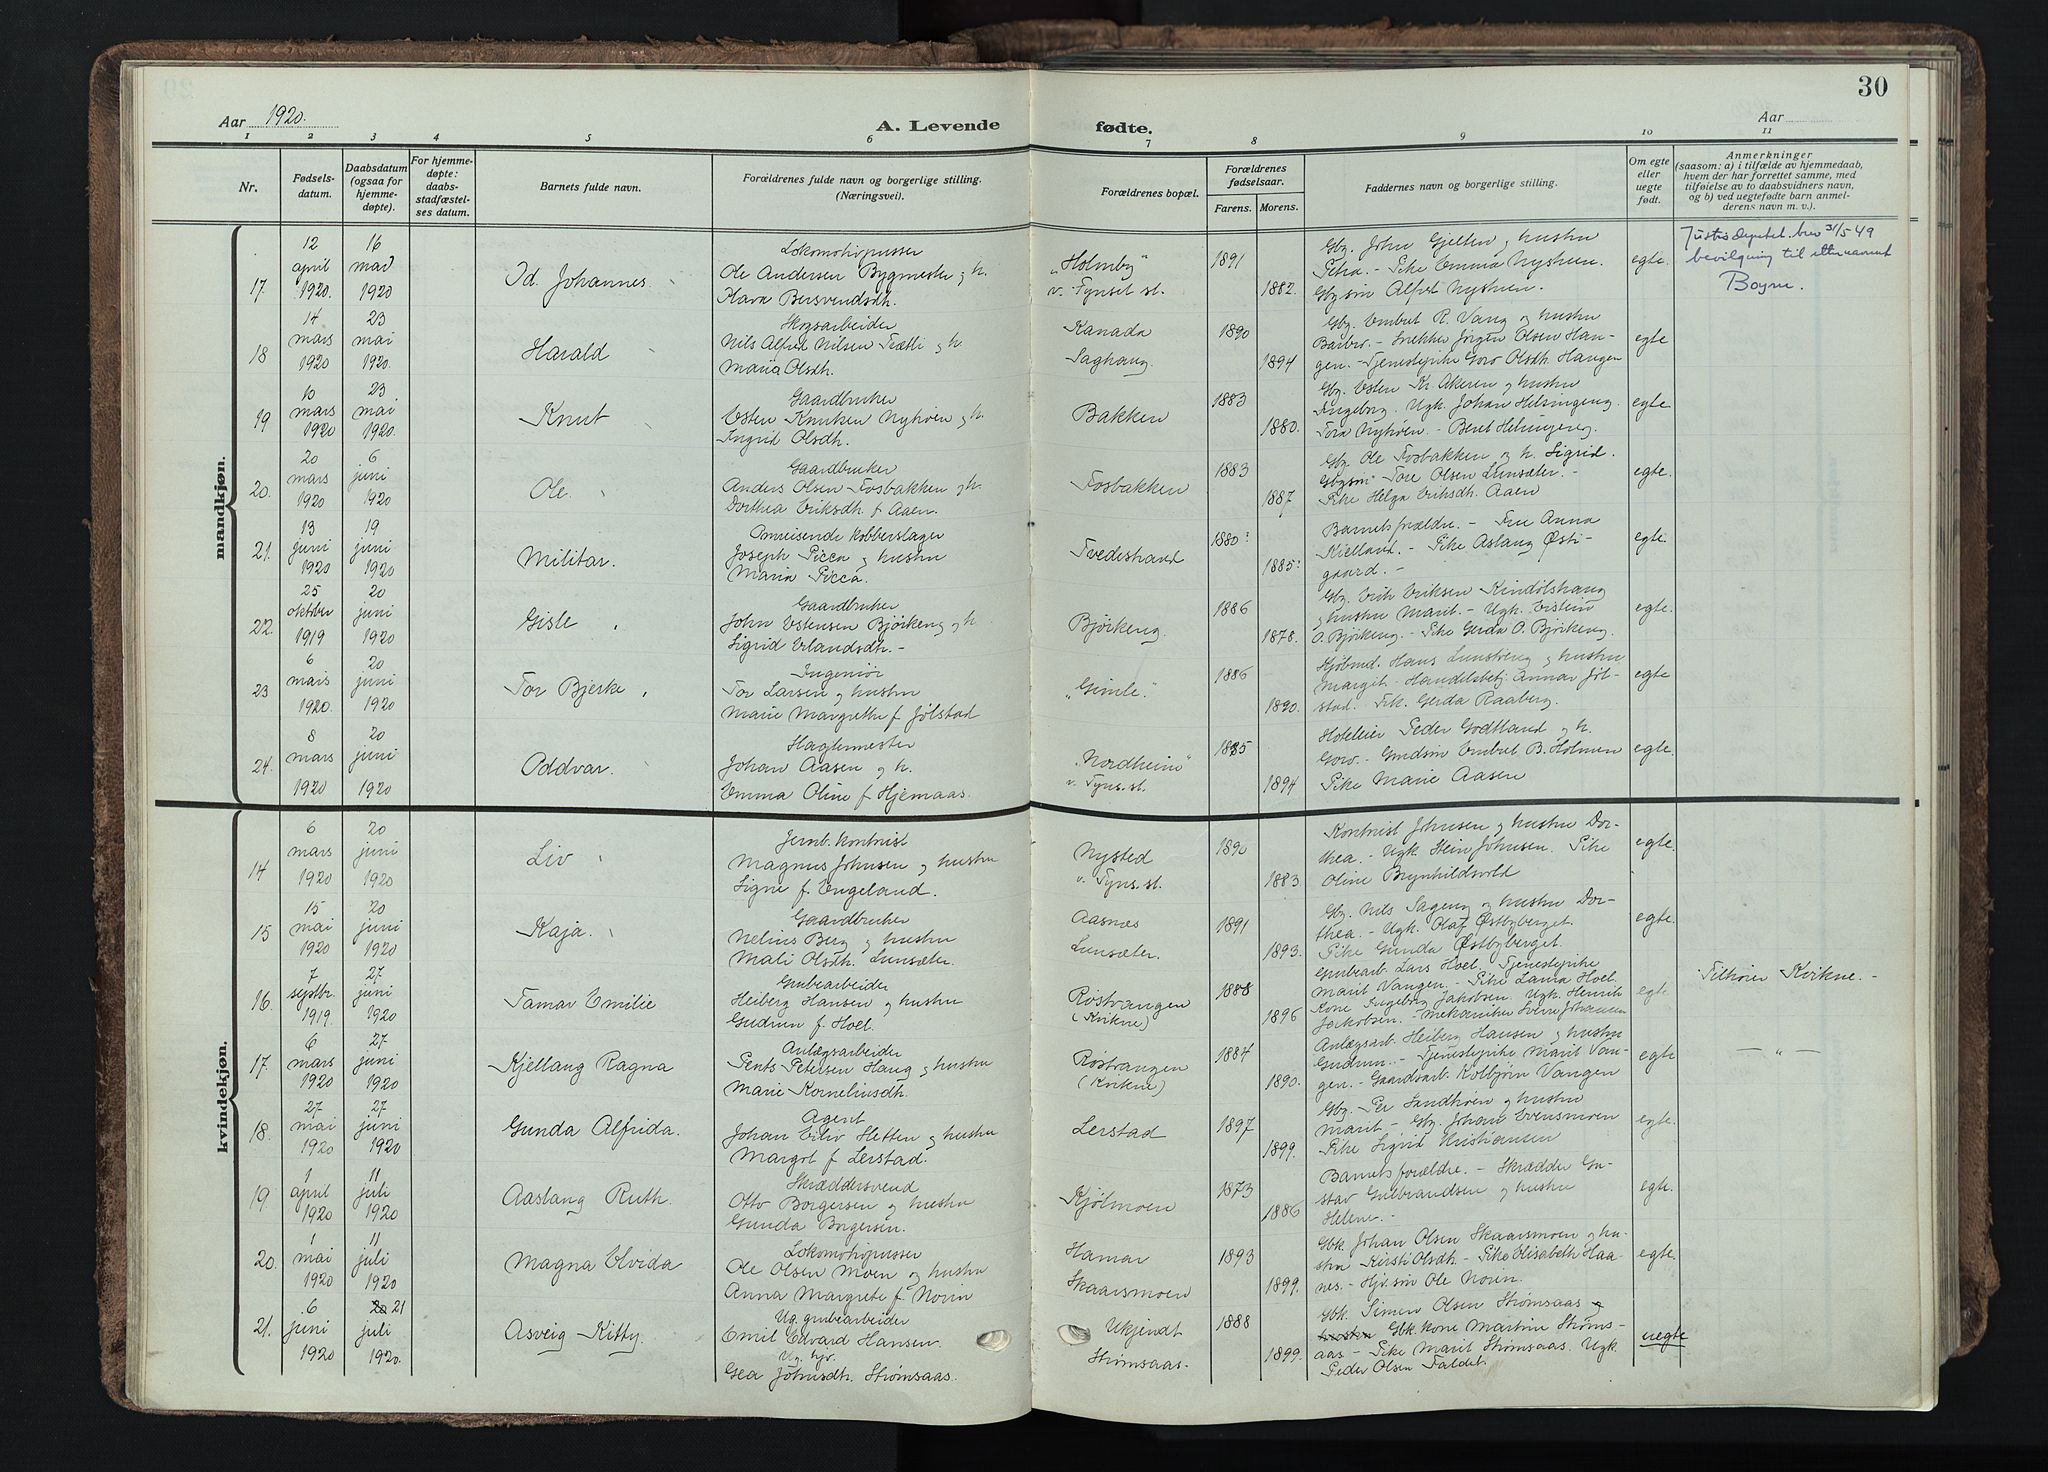 30
Aar 1920.
A. Levende fødte.
Aar
1 2 3 4 5 6 7 8 9 10 11
Nr.
Fødsels-
datum.
Daabsdatum
(ogsaa for
hjemme-
døpte).
For hjemme-
døpte:
daabs-
stadfæstel-
ses datum.
Barnets fulde navn.
Forældrenes fulde navn og borgerlige stilling.
(Næringsvei).
Forældrenes bopæl.
Forældrenes
fødselsaar.
Farens. Morens.
Faddernes navn og borgerlige stilling.
Om egte
eller
uegte
født.
Anmerkninger
(saasom: a) i tilfælde av hjemmedaab,
hvem der har forrettet samme, med
tilføielse av to daabsvidners navn,
og b) ved uegtefødte barn anmel-
derens navn m. v.).
mandkjøn.
17.
12
april
1920.
16
mai
1920
Id. Johannes.
Lokomotivpusser
Ole Andersen Bygmester og h.
Klara Bersvendsdh.
"Holmby"
v. Tynset st.
1891
1882.
Gbr. John Gjelten og hustru
Petra. - Pike Emma Nystuen.
Gbrsøn Alfred Nystuen.
egte.
Justisdeptet. brev 31/5 49
bevilgning til etternavnet
Boyne.
18
14
mars
1920
23
mai
1920.
Harald
Skogsarbeider
Nils Alfred Nilsen Trætli og h.
Maria Olsdh.
Kanada
Saghaug.
1890
1894
Gbr. Embret R. Vang og hustru
Barbro. - Snekker Jørgen Olsen Han-
gen. - Tjenestepike Goro Olsdh. Haugen
egte
19
10
mars
1920
23
mai
1920.
Knut
Gaardbruker
Esten Knutsen Nyhoen og h.
Ingrid Olsdh.
Bakken
1883
1880.
Gbr. Esten Kr. Akeren og hustru
Ingeborg. Ugk. Johan Helsingeng.
Tora Nyhoen. - Beret Helsingeng.
egte
20.
20
mars
1920
6
juni
1920
Ole.
Gaardbruker
Anders Olsen Fosbakken og h.
Dorthea Eriksdh. f Aaen.
Fosbakken
1883
1887
Gbr. Ole Fosbakken og h. Sigrid.
Gbrsøn Tore Olsen Lunsæter. -
Pike Helga Eriksdh. Aaen
egte.
21.
13
juni
1920
19
juni
1920
Militar.
Omreisende kobberslager
Joseph Picca og hustru
Maria Picca.
Tvedestrand
1880?
1885?
Barnets forældre. - Fru Anna
Kielland. - Pike Aslaug Østi-
gaard. -
egte.
22.
25
oktober
1919
20
juni
1920
Gisle
Gaardbruker
John Estensen Bjørkeng og h.
Sigrid Erlandsdh. -
Bjørkeng.
1886
1878.
Gbr. Erik Eriksen Kindølshaug
og hustru Marit. - Ugk. Eistein
O. Bjørkeng. - Pike Gerda O. Bjørkeng.
egte.
23
6
mars
1920.
20
juni
1920
Tor Bjerke
Ingeniør
Tor Larsen og hustru
Marie Margrethe f Jølstad
"Gimle."
1886
1890.
Kjøbmd. Hans Lunsteng og hustru
Margit - Handelsbetj. Annar Jøl-
stad. Frk. Gerda Raaberg.
egte
24.
8
mars
1920
20
juni
1920
Oddvar.
Haglermester
Johan Aasen og h.
Emma Oline f Hjemaas.
"Nordheim"
v. Tyns. st.
1885
1894
Hoteleier Peder Godtland og h.
Goro. - Grudsøn Embret B. Holmen
Pike Marie Aasen
egte.
kvindekjøn.
14
6
mars
1920
20
juni
1920
Liv
Jernb. kontorist
Magnus Johnsen og hustru
Signe f. Engeland.
Nysted
v. Tyns. st.
1890
1883.
Kontorist Johnsen og hustru Dor-
thea. - Ugk. Hein Johnsen. Pike
Oline Brynhildsvold
egte.
15
15
mai
1920
20
juni
1920
Kaja.
Gaardbruker
Nelius Berg og hustru
Mali Olsdh. Lunsæter.
Aasnes
Lunsæter.
1891
1893.
Gbr. Nils Sageng og hustru Dor-
thea. - Ugk. Olaf Østbyberget.
Pike Gunda Østbyberget.
egte.
16.
7
septbr.
1919.
27.
juni
1920
Tamar Emilie
Grubearbeider
Heiberg Hansen og hustru
Gudrun f. Hoel.
Røstvangen
(Kvikne)
1888
1896
Grubearb. Lars Hoel. Tjenestepike
Marit Vangen. - Pike Laura Hoel.
Kone Ingeborg Jakobsen. Ugk. Henrik
Jakobsen. - Mekaniker Sverre Johansen
egte.
Tilhører Kvikne. -
17.
6
mars
1920
27.
juni
1920
Kjellaug Ragna
Anlægsarbeider
Pents Petersen Haug og hustru
Marie Korneliusdh.
Røstvangen
(Kvikne)
1884
1890.
Anlægsarb. Heiberg Hansen og hustru
Gudrun. - Tjenestepike Marit Van-
gen. - Gaardsarb. Kolbjørn Vangen
egte
— " —
18.
27
mai
1920
27
juni
1920
Gunda Alfrida.
Agent
Johan Eiliv Hetten og hustru
Margot f Lerstad.
Lerstad
1897
1899.
Gbr. Per Sandhoen og hustru
Marit - Gbr. Johan Evensmoen
Pike Sigrid Kristiansen
egte.
19.
1
april
1920
11
juli
1920
Aaslaug Ruth.
Skræddersvend
Otto Borgersen og hustru
Gunda Borgersen.
Kjølmoen
1873
1886
Barnets forældre. - Skrædder Gu-
stav Gulbrandsen og hustru
Helene. -
egte.
20.
1
mai
1920
11
juli
1920
Magna Elvida
Lokomotivpusser
Ole Olsen Moen og hustru
Anna Margrete f Norin
Hamar
Skaarsmoen
1893
1899.
Gbk. Johan Olsen Skaarsmoen og hu-
stru Kirsti Olsdh. - Pike Elisabeth Haa-
nes. - Hjv. søn Ole Norin.
egte.
21.
6
juni
1920
20 21
juli
1920.
Asveig Kitty.
Ug. grubearbeider
Emil Edvard Hansen.
Ug. hjv.
Gea Johnsdh. Strømsaas.
Ukjendt
Strømsaas.
1888
1899.
Gbk. Simen Olsen Strømsaas og
hustru Gbk. kone Martine Strøms-
aas - Pike Marit Strømsaas. Ugk
Peder Olsen Faldet.
uegte